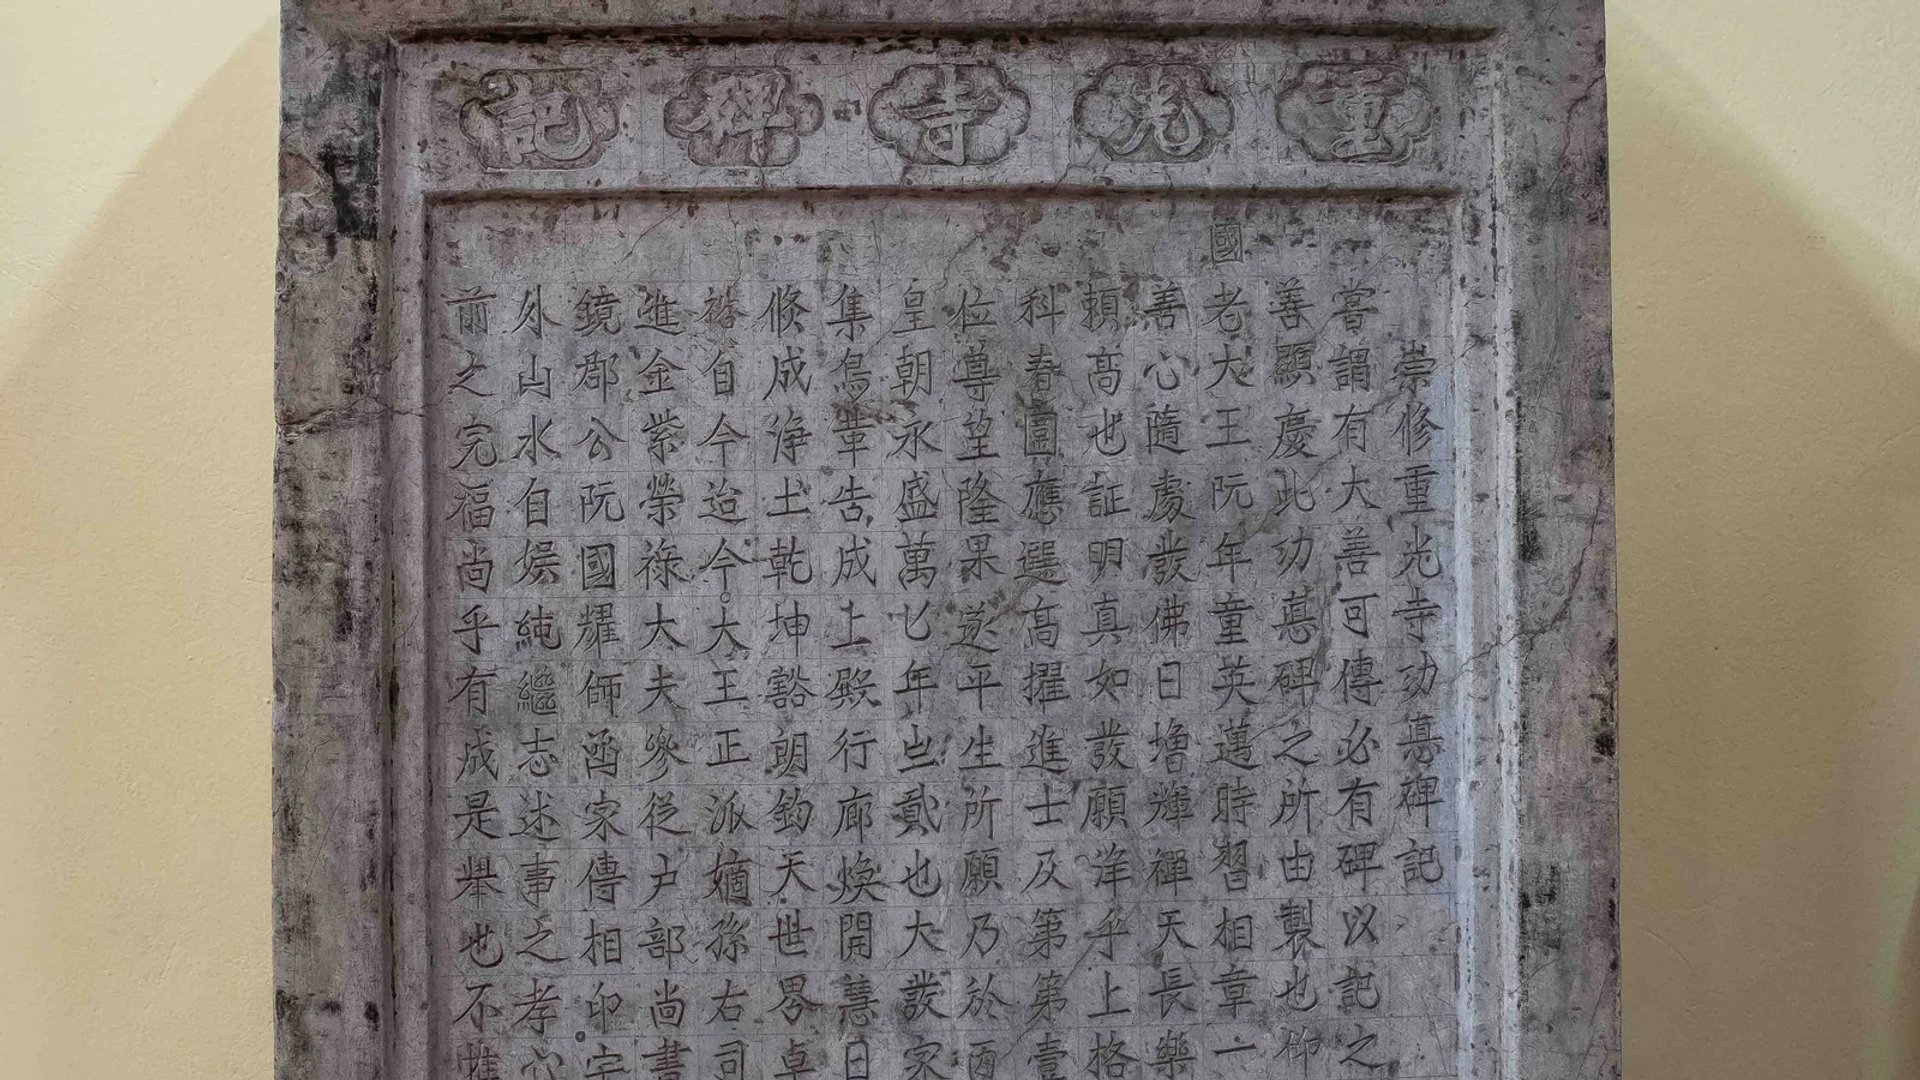 重光寺碑記
崇修重光寺功悳碑記
嘗謂有大善可傳必有碑以記之
善顯慶此功悳碑之所由製也仰
國老大王阮年童英邁時習相章一
善心隨處發佛日增輝禪天長樂
頼髙也証明真如發願洋乎上格
科春圍應選髙擢進士及第第壹
位尊望隆果遂平生所願乃於酉
皇朝永盛萬乜年亗貳也大發家
集鳥輩告成上殿行廊煥開慧日
修成淨土乾坤豁朗鈞天世界卓
裕自今迨今大王正派嫡孫右司
進金紫榮祿大夫參從户部尚書
鏡郡公阮國耀師啇家傳相印宇
外山水自娛純繼志述事之孝心
前之完福尚乎有成是舉也不惟